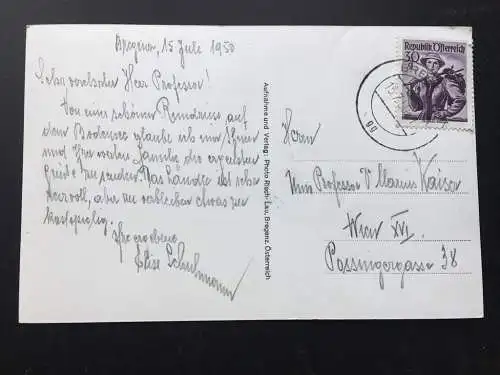 Bregenz, 15 Juli 1950
Sehr verehrter Herr Professor!
Von einer schönen Rundreise auf
dem Bodensee erlaube ich mir Ihnen
und Ihrer werten Familie die ergebensten
Grüße zu senden. Das Ländle ist sehr
reizvoll, aber
kostspielig.
Ihre ergebene
Elise Schuhmann
Aufnahme und Verlag: Photo Risch-Lau, Bregenz, Österreich
Republik Österreich
30
Herrn
Professor Marius Kaiser
Wien XVI.
Possingergasse 38